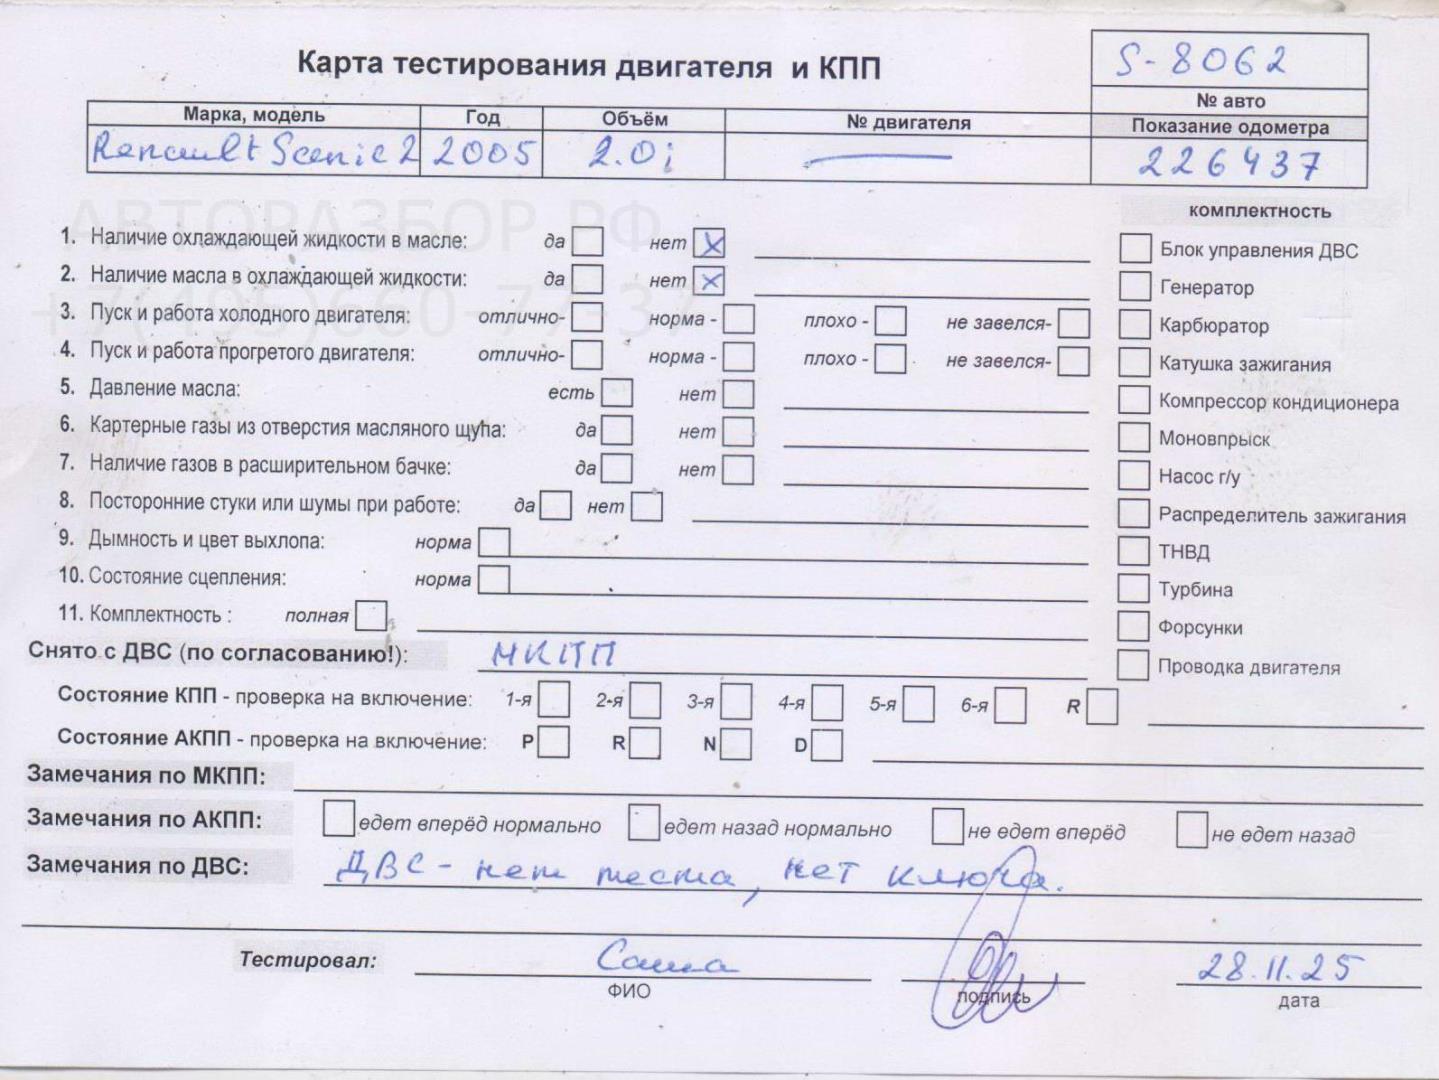 Карта тестирования двигателя и КПП
S-8062
№ авто
Марка, модель Год Объём № двигателя Показание одометра
Renault Scenic 2 2005 2.0i 226437
АВТОРАЗБОР.РФ
+7(495)660-77-37
комплектность
1. Наличие охлаждающей жидкости в масле: да нет x
Блок управления ДВС
2. Наличие масла в охлаждающей жидкости: да нет x
Генератор
3. Пуск и работа холодного двигателя: отлично- норма - плохо - не завелся-
Карбюратор
4. Пуск и работа прогретого двигателя: отлично- норма - плохо - не завелся-
Катушка зажигания
5. Давление масла: есть нет
Компрессор кондиционера
6. Картерные газы из отверстия масляного щупа: да нет
Моновпрыск
7. Наличие газов в расширительном бачке: да нет
Насос г/у
8. Посторонние стуки или шумы при работе: да нет
Распределитель зажигания
9. Дымность и цвет выхлопа: норма
ТНВД
10. Состояние сцепления: норма
Турбина
11. Комплектность : полная
Форсунки
Снято с ДВС (по согласованию!): МКПП
Проводка двигателя
Состояние КПП - проверка на включение: 1-я 2-я 3-я 4-я 5-я 6-я R
Состояние АКПП - проверка на включение: P R N D
Замечания по МКПП:
Замечания по АКПП: едет вперёд нормально едет назад нормально не едет вперёд не едет назад
Замечания по ДВС: ДВС - нет теста, нет ключа.
Тестировал: Саша 28.11.25
ФИО подпись дата